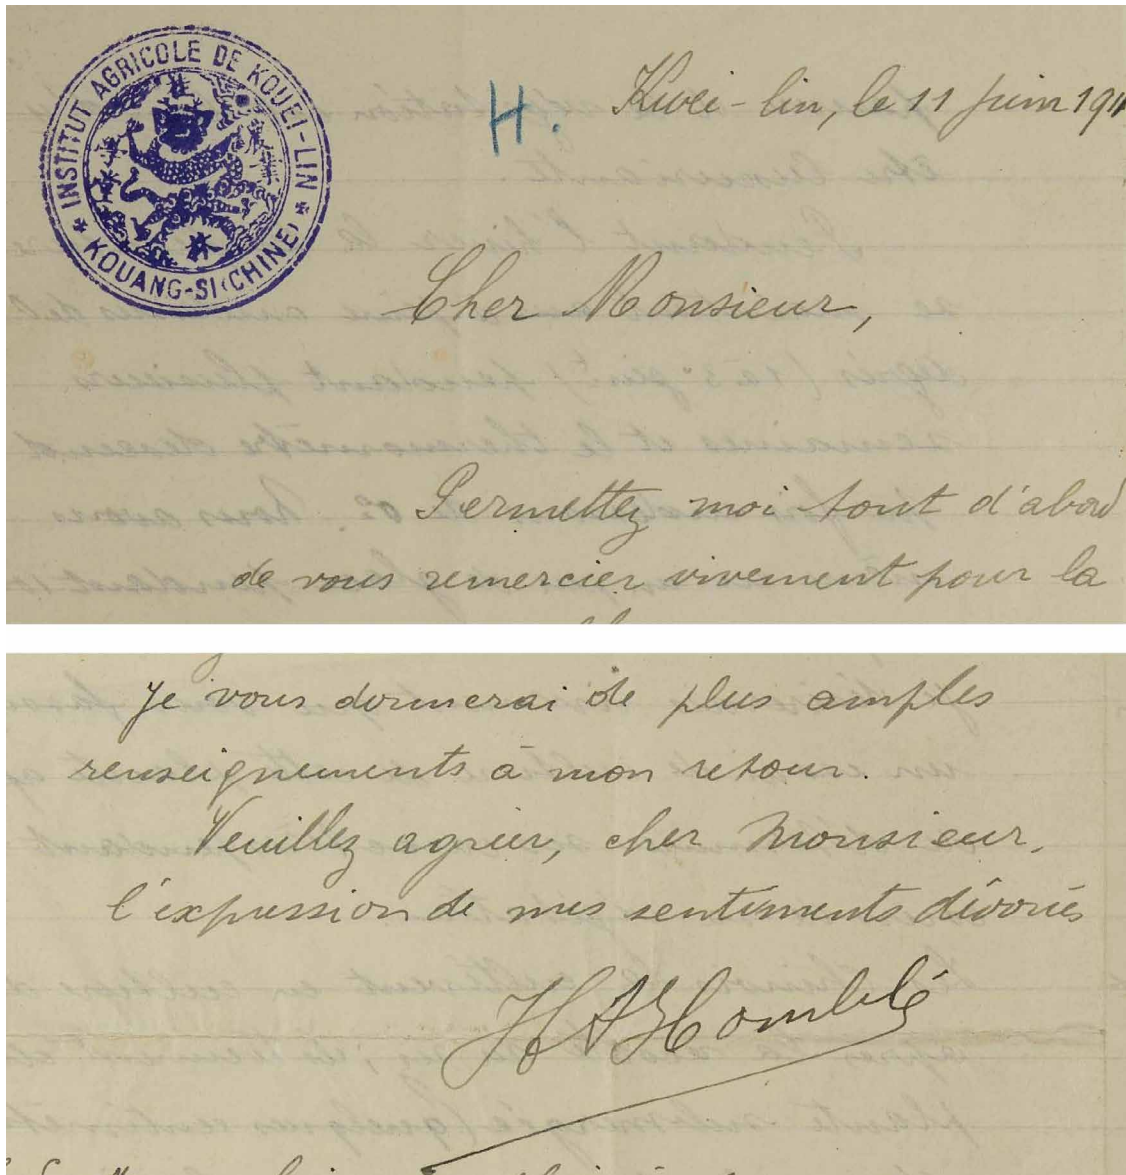 INSTITUT AGRICOLE DE KOUEI-LIN
KOUANG-SI (CHINE)
H.
Kwei-lin, le 11 juin 191
Cher Monsieur,
Permettez moi tout d'abord
de vous remercier vivement pour la
Je vous donnerai de plus amples
renseignements à mon retour.
Veuillez agréer, cher Monsieur,
l'expression de mes sentiments dévoués